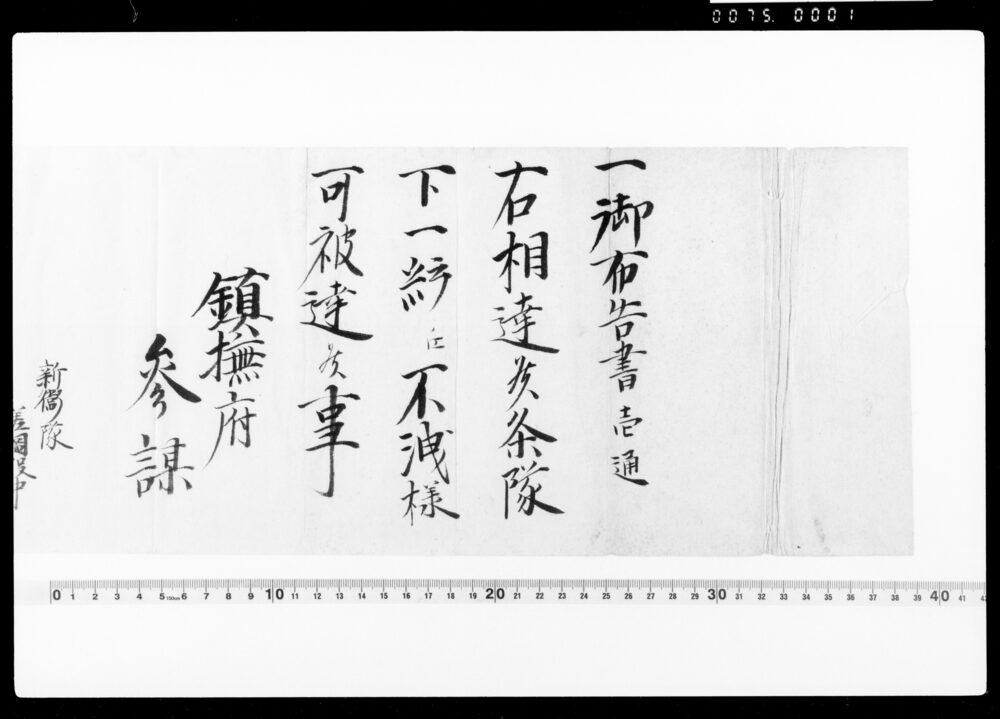 0075. 0001
一御布告書壱通
右相達候条隊
下一統江不洩様
可被達候事
鎮撫府
参謀
新衛隊
差図役中
0 1 2 3 4 5 150cm 6 7 8 9 10 11 12 13 14 15 16 17 18 19 20 21 22 23 24 25 26 27 28 29 30 31 32 33 34 35 36 37 38 39 40 41